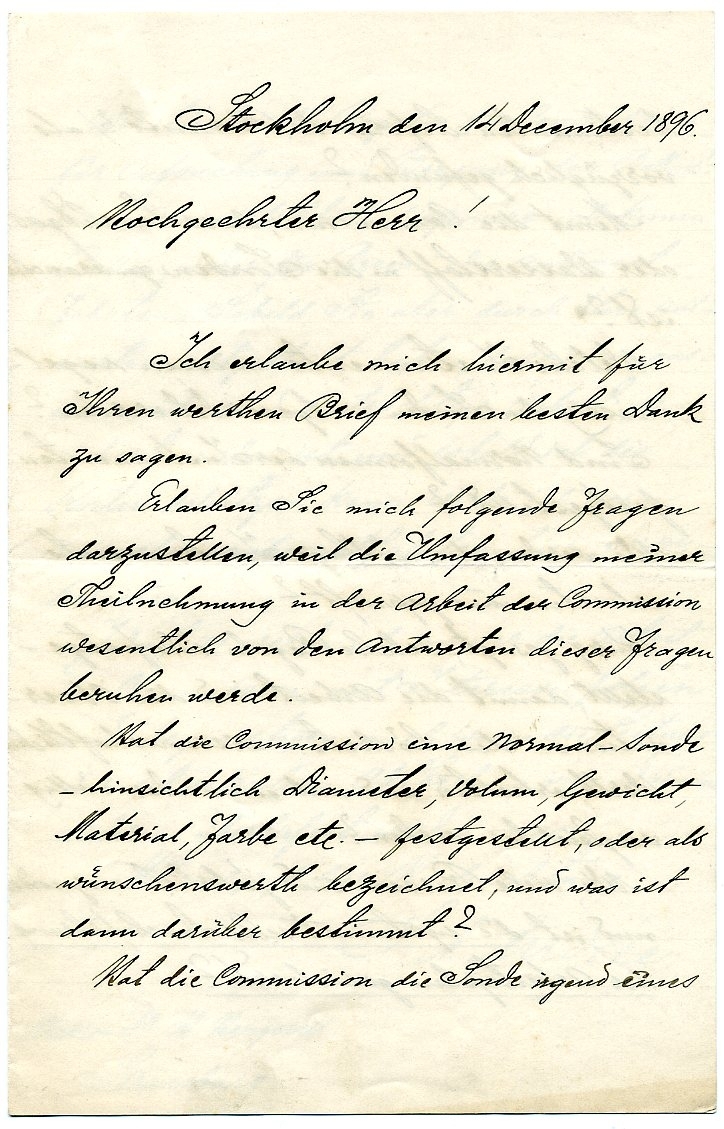 Stockholm den 14 December 1896.
Hochgeehrter Herr!
Ich erlaube mich hiermit für
Ihren werthen Brief meinen besten Dank
zu sagen.
Erlauben Sie mich folgende Fragen
darzustellen, weil die Umfassung meiner
Theilnehmung in der Arbeit der Commission
wesentlich von den Antworten dieser Fragen
beruhen werde.
Hat die Commission eine Normal-Sonde
- hinsichtlich Diameter, Volum, Gewicht,
Material, Farbe etc. - festgestellt, oder als
wünschenswerth bezeichnet, und was ist
dann darüber bestimmt?
Hat die Commission die Sonde irgend eines